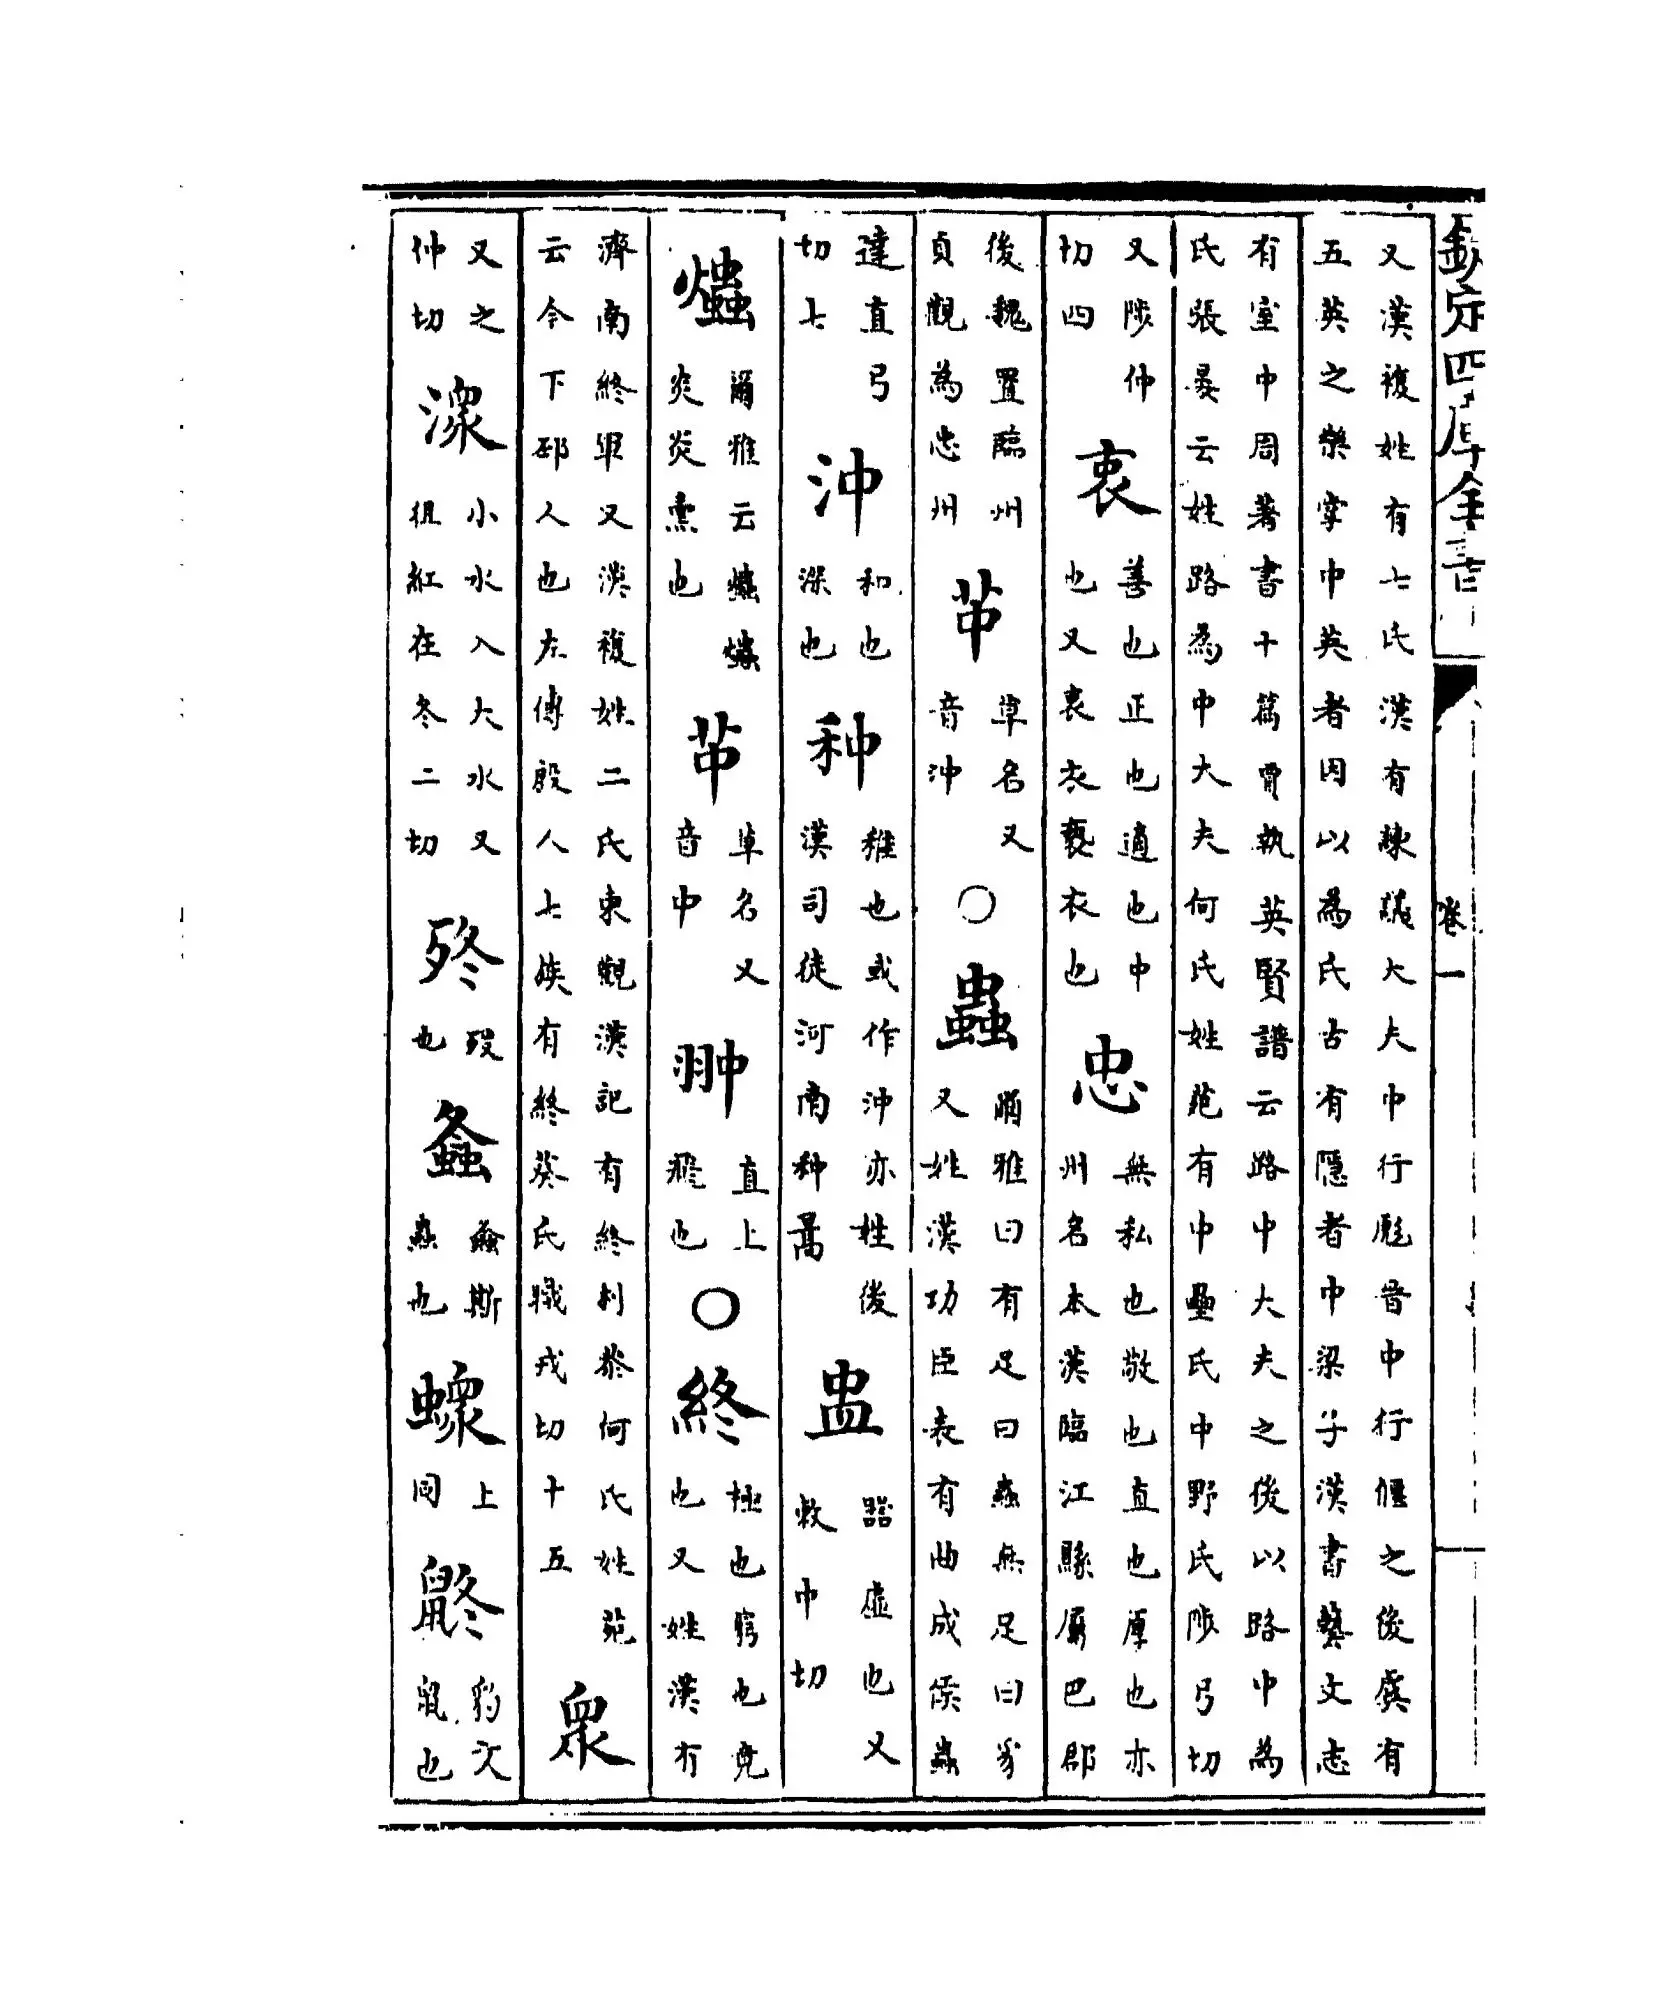 欽定四庫全書
卷一
又漢複姓有七氏漢有諫議大夫中行彪晉中行偃之後虞有
五英之樂掌中英者因以為氏古有隱者中梁子漢書藝文志
有室中周著書十篇賈執英賢譜云路中大夫之後以路中為
氏張晏云姓路為中大夫何氏姓苑有中壘氏中野氏陟弓切
又陟仲切四 衷 善也正也適也中也又衷衣褻衣也 忠 無私也敬也直也厚也亦州名本漢臨江縣屬巴郡
後魏置臨州貞觀為忠州 𦬕 草名又音沖 ○ 蟲 爾雅曰有足曰蟲無足曰豸又姓漢功臣表有曲成侯蟲
達直弓切七 沖 和也深也 种 稚也或作沖亦姓後漢司徒河南种暠 盅 器虛也又敕中切
爞 爾雅云爞爞炎炎熏也 𦬕 草名又音中 翀 直上飛也 ○ 終 極也窮也竟也又姓漢有
濟南終軍又漢複姓二氏東觀漢記有終利恭何氏姓苑云今下邳人也左傳殷人七族有終葵氏職戎切十五 眾
又之仲切 潨 小水入大水又徂紅在冬二切 𣧩 歿也 螽 螽斯蟲也 𧑄 上同 鼨 豹文鼠也